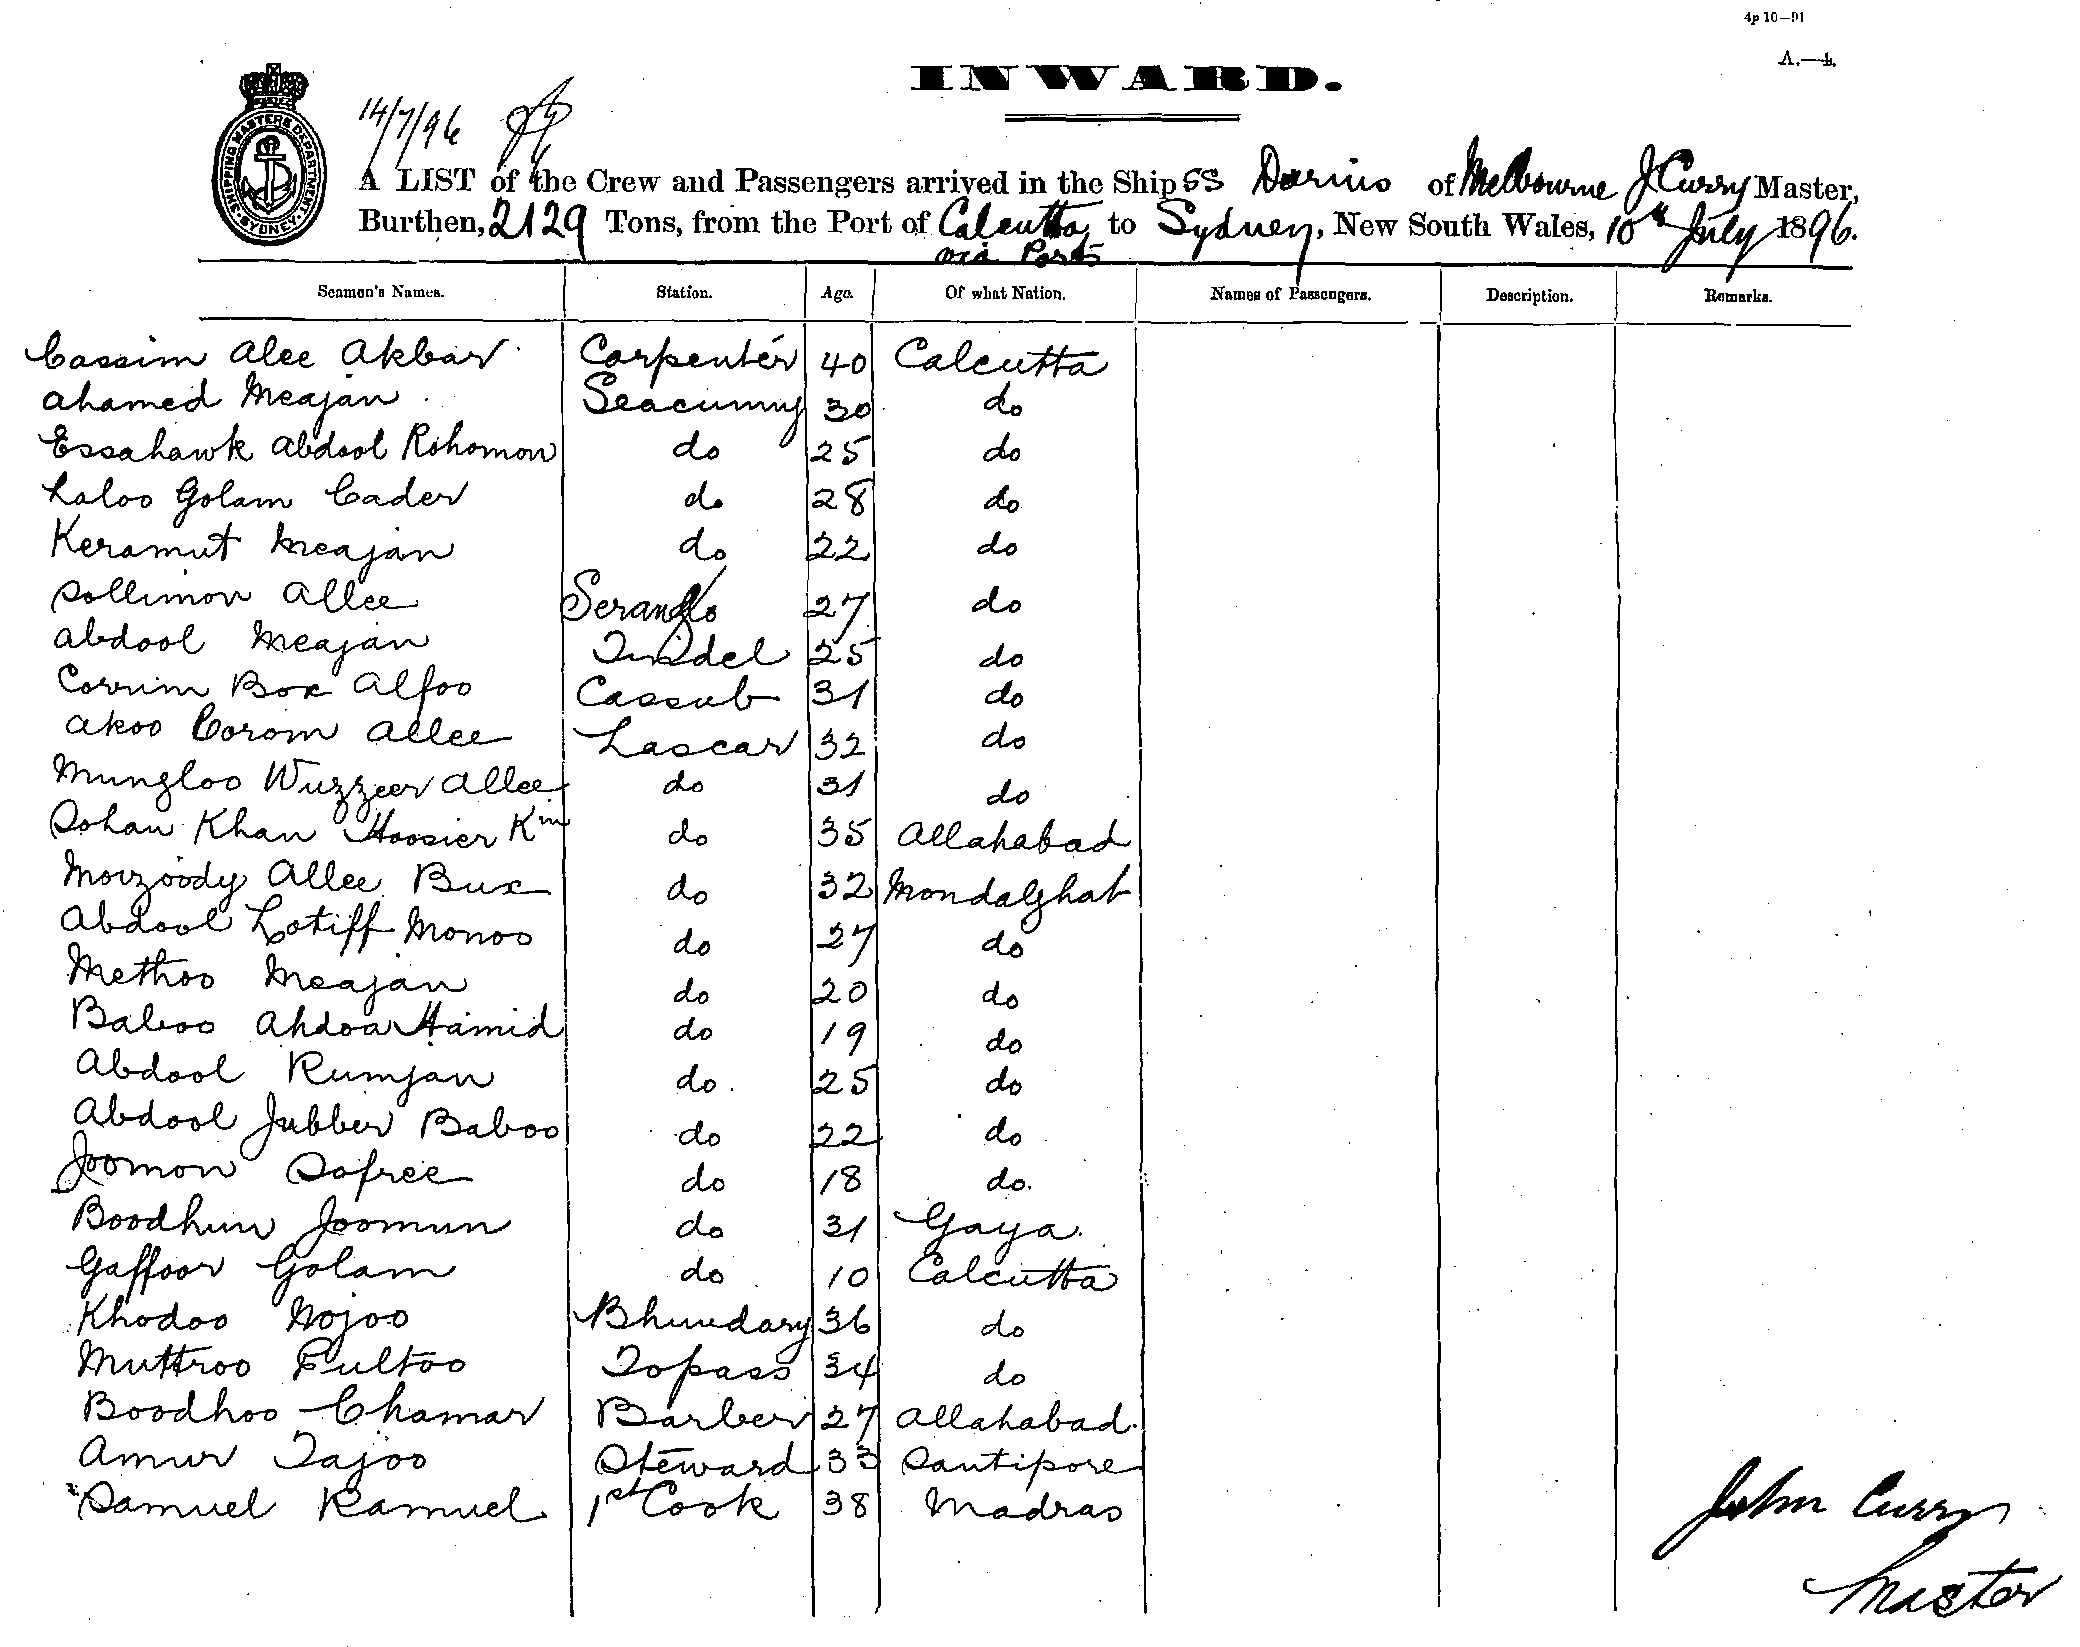 4p 10—91
A.—4.
INWARD.
SHIPPING MASTERS DEPARTMENT SYDNEY
14/7/96
A LIST of the Crew and Passengers arrived in the Ship SS Darius of Melbourne J Curry Master,
Burthen, 2129 Tons, from the Port of Calcutta to Sydney, New South Wales, 10th July 1896.
via Ports
Seamen's Names. Station. Age. Of what Nation. Names of Passengers. Description. Remarks.
Cassim Alee Akbar Carpenter 40 Calcutta
Ahamed Meajan Seacunny 30 do
Essahawk Abdool Rohomon do 25 do
Laloo Golam Cader do 28 do
Keramut Meajan do 22 do
Sollimon Allee Serang 27 do
Abdool Meajan Tindel 25 do
Corrim Box Alfoo Cassub 31 do
Akoo Corom Allee Lascar 32 do
Mungloo Wuzzeer Allee do 31 do
Sohan Khan Hoosier Kin do 35 Allahabad
Moizoody Allee Bux do 32 Mondalghat
Abdool Lotiff Monoo do 27 do
Methoo Meajan do 20 do
Baboo Ahdoa Hamid do 19 do
Abdool Rumjan do 25 do
Abdool Jubber Baboo do 22 do
Joomon Sofree do 18 do.
Boodhun Joomun do 31 Gaya.
Gaffoor Golam do 10 Calcutta
Khodoo Nojoo Bhundary 36 do
Muttroo Fultoo Topass 34 do
Boodhoo Chamar Barber 27 Allahabad.
Amur Tajoo Steward 33 Santipore
Samuel Ramuel 1st Cook 38 Madras
John Curry
Master